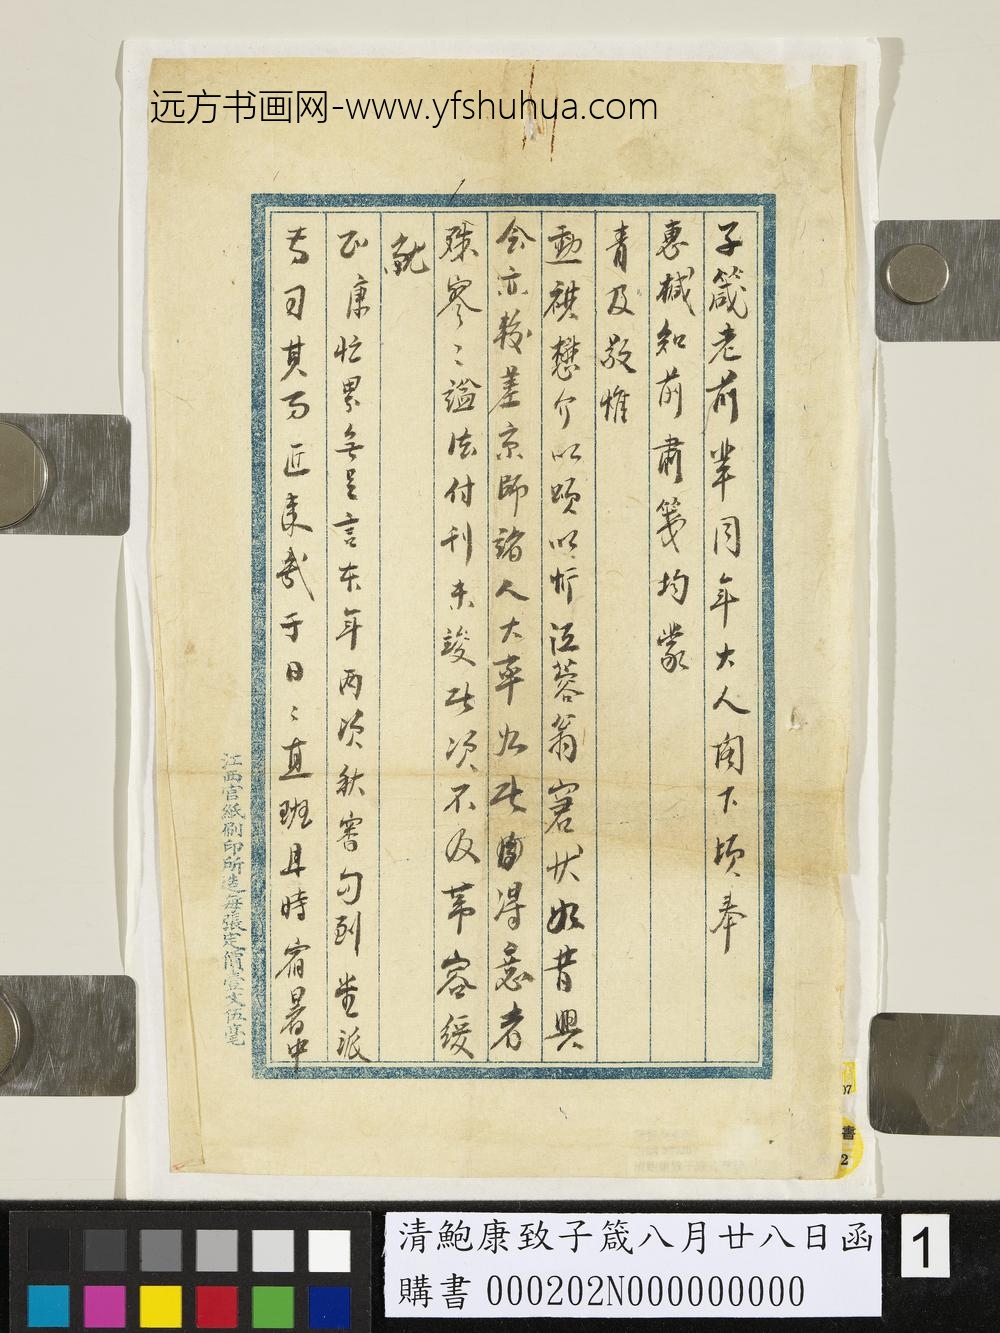 远方书画网-www.yfshuhua.com
子箴老前輩同年大人閣下頃奉
惠械知前肅箋均蒙
青及敬惟
勛祺懋介以頌以忻江蓉翁窘状如昔興
会亦較差京師諸人大率如此固得意者
殊寥々謚法付刊未竣此次不及带容缓
就
正康忙累無足言本年两次秋審勾到堂派
专司其而近来式于日々直班且時宿署中
江西官紙刷印所造每張定價壹文伍毫
07
書
2
清鮑康致子箴八月廿八日函
購書 000202N000000000
1